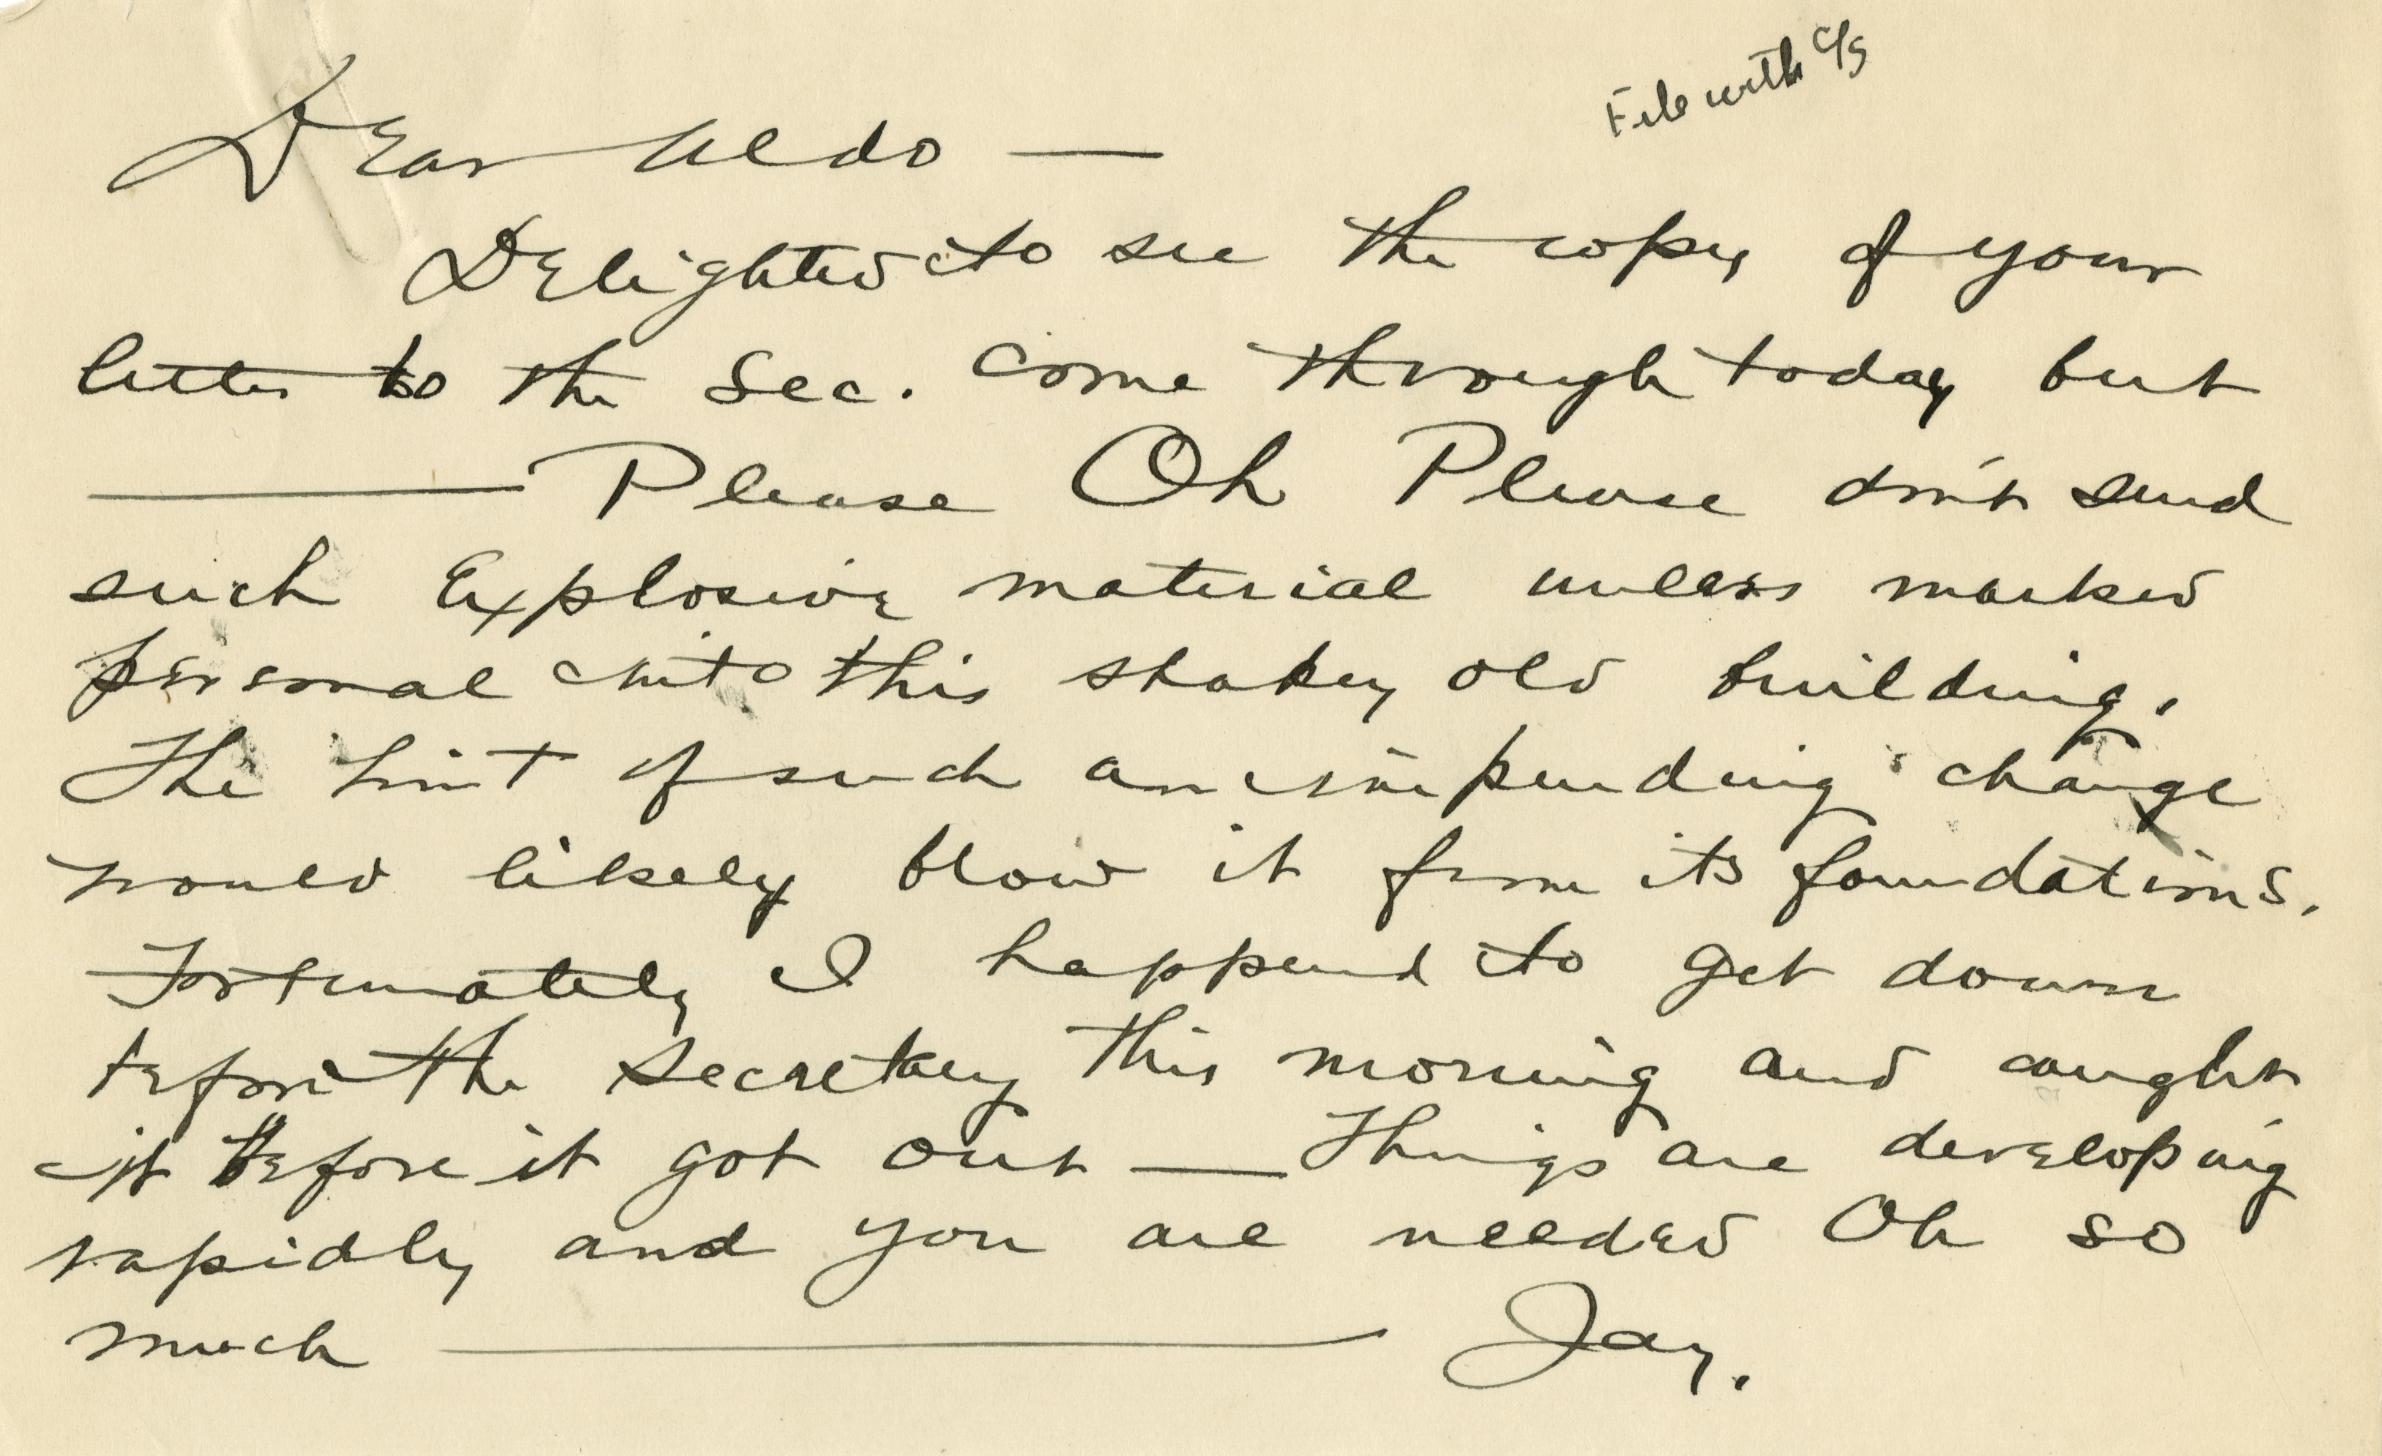 File with C/S
Dear Aldo —
Delighted to see the copy of your
letter to the Sec. come through today but
— Please Oh Please don't send
such Explosive material unless marked
personal into this shakey old building.
The hint of such an impending change
would likely blow it from its foundations.
Fortunately I happend to get down
before the Secretary this morning and caught
it before it got out — Things are developing
rapidly and you are needed Oh so
much — Jay.